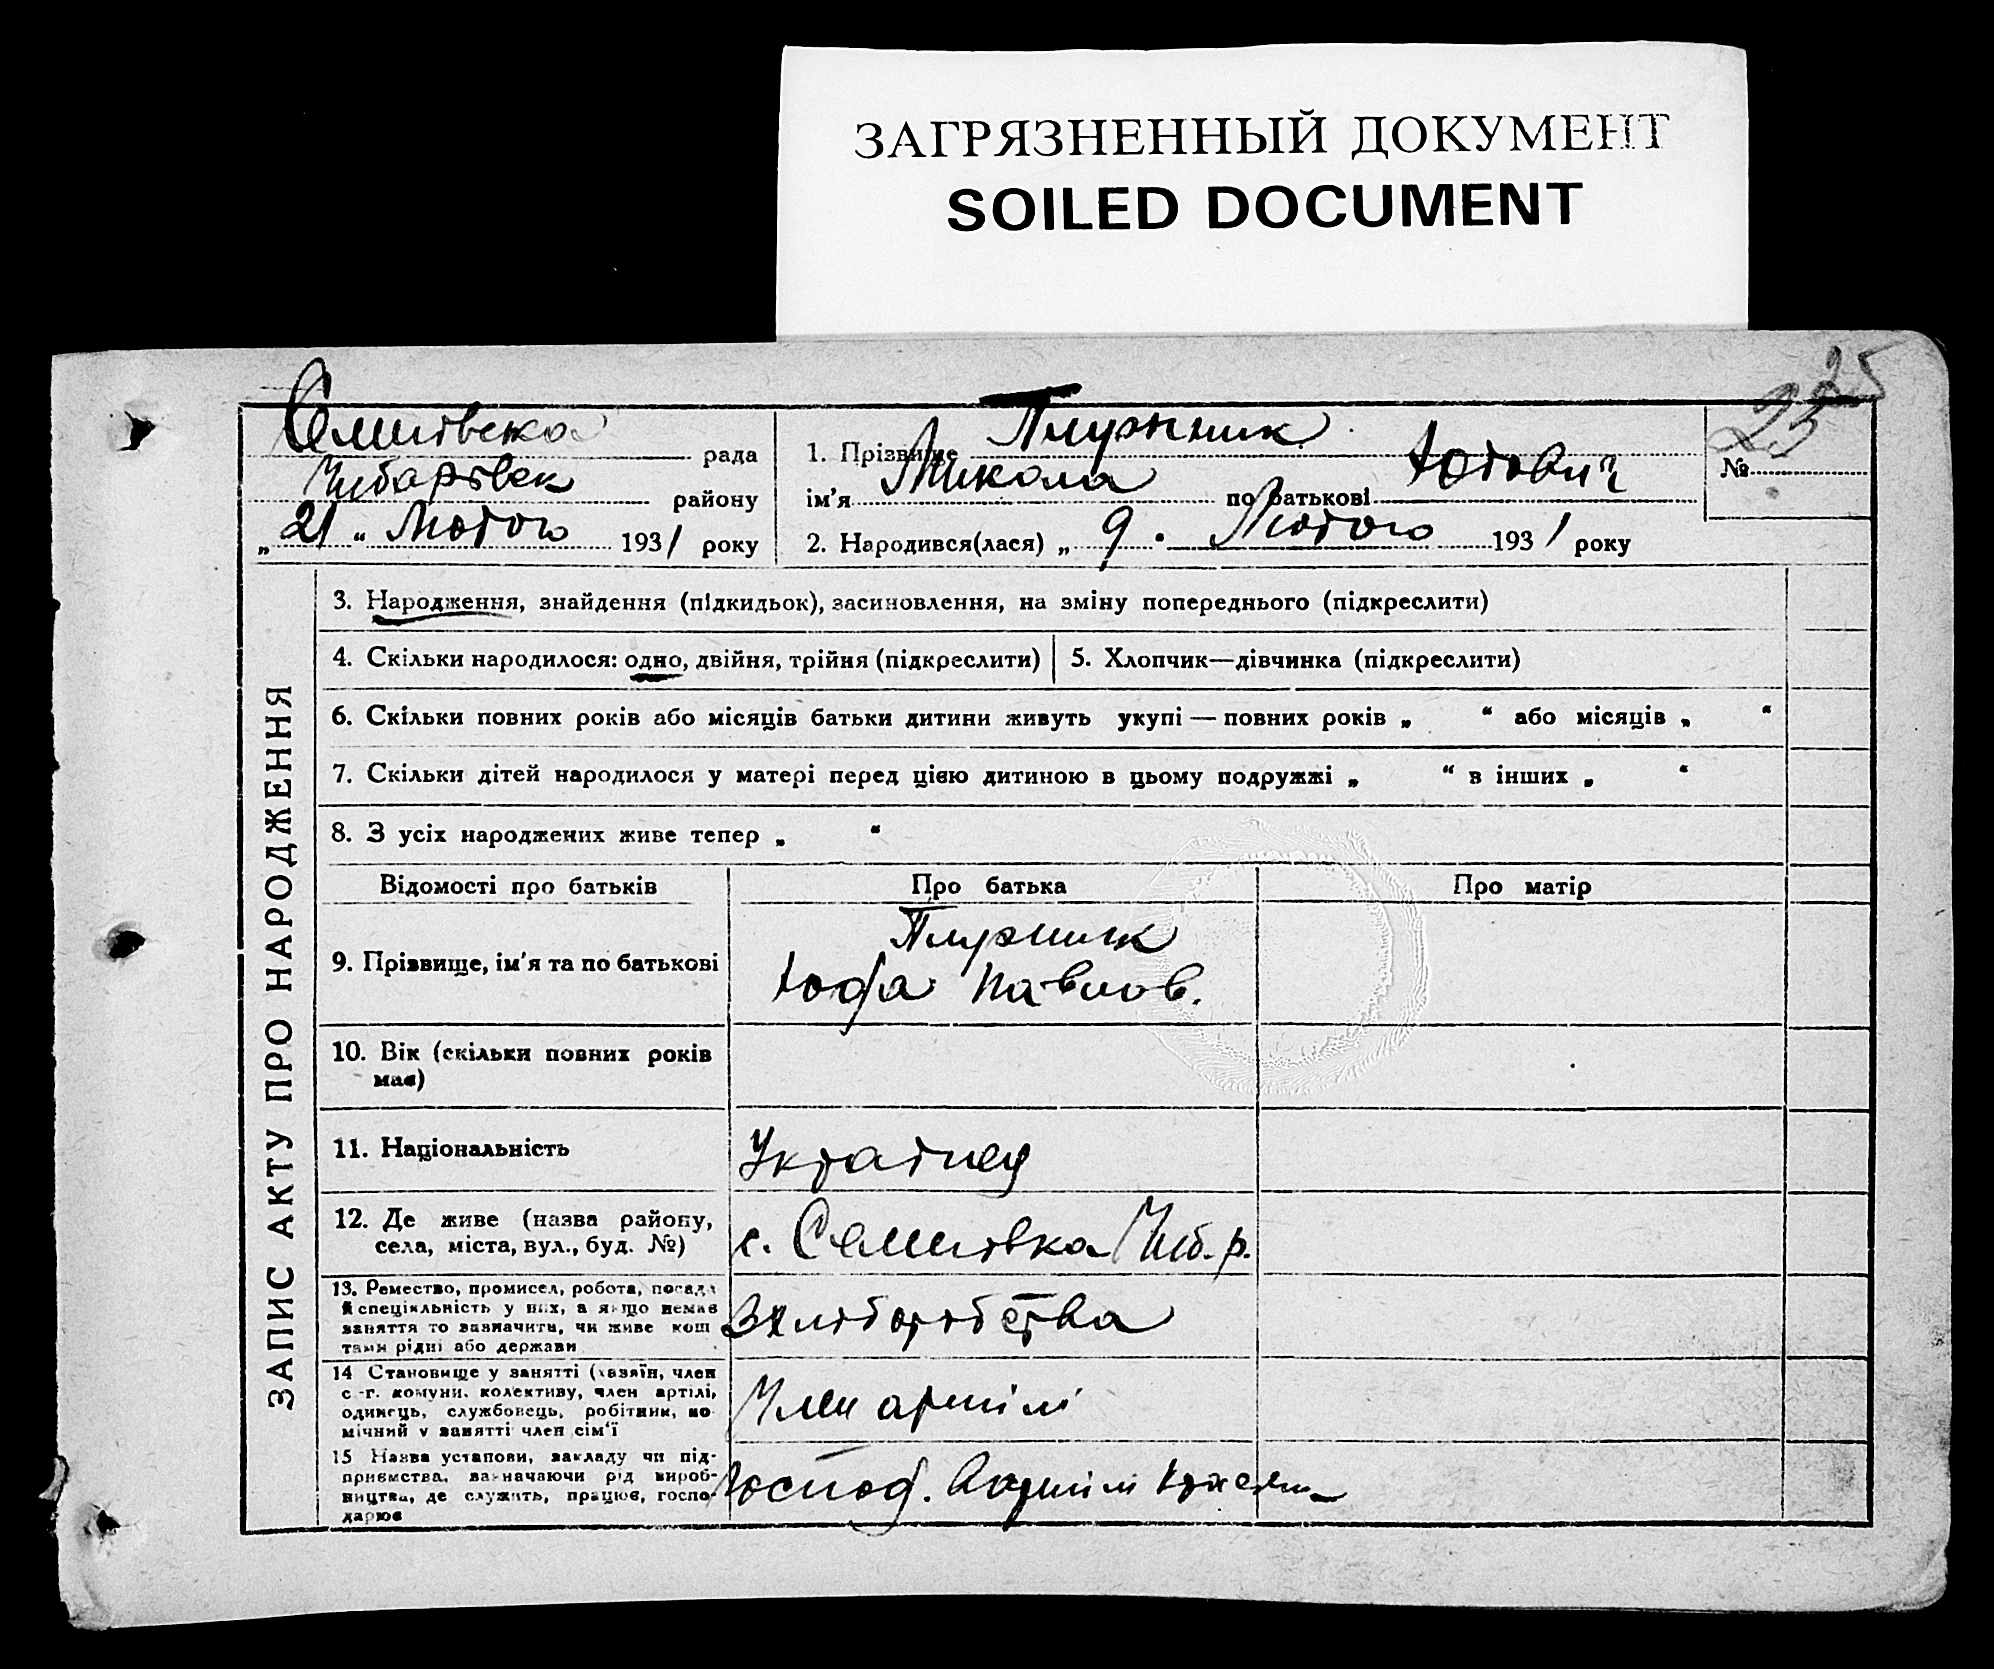 ЗАГРЯЗНЕННЫЙ ДОКУМЕНТ
SOILED DOCUMENT
25
рада
району
„21“ Лютого 1931 року
1. Прізвище
ім'я Микола по батькові Юхович
2. Народився(лася) „9. Лютого 1931 року
№ 23
ЗАПИС АКТУ ПРО НАРОДЖЕННЯ
3. Народження, знайдення (підкидьок), засиновлення, на зміну попереднього (підкреслити)
4. Скільки народилося: одно, двійня, трійня (підкреслити)
5. Хлопчик—дівчинка (підкреслити)
6. Скільки повних років або місяців батьки дитини живуть укупі — повних років „ “ або місяців „ “
7. Скільки дітей народилося у матері перед цією дитиною в цьому подружжі „ “ в інших „ “
8. З усіх народжених живе тепер „ “
Відомості про батьків
Про батька
Про матір
9. Прізвище, ім'я та по батькові
Павлов.
10. Вік (скільки повних років
має)
11. Національність
Українец
12. Де живе (назва району,
села, міста, вул., буд. №)
с. Семенівка р.
13. Ремество, промисел, робота, посада
й спеціяльність у них, а якщо немає
заняття то зазначити, чи живе кош
тами рідні або держави
З хліборобства
14 Становище у занятті (хазяїн, член
с-г. комуни, колективу, член артілі,
одинець, службовець, робітник, по
мічний у занятті член сім'ї
Член артілі
15 Назва установи, закладу чи під-
приємства, зазначаючи рід вироб-
ництва, де служить, працює, госпо-
дарює
Господ. в артілі